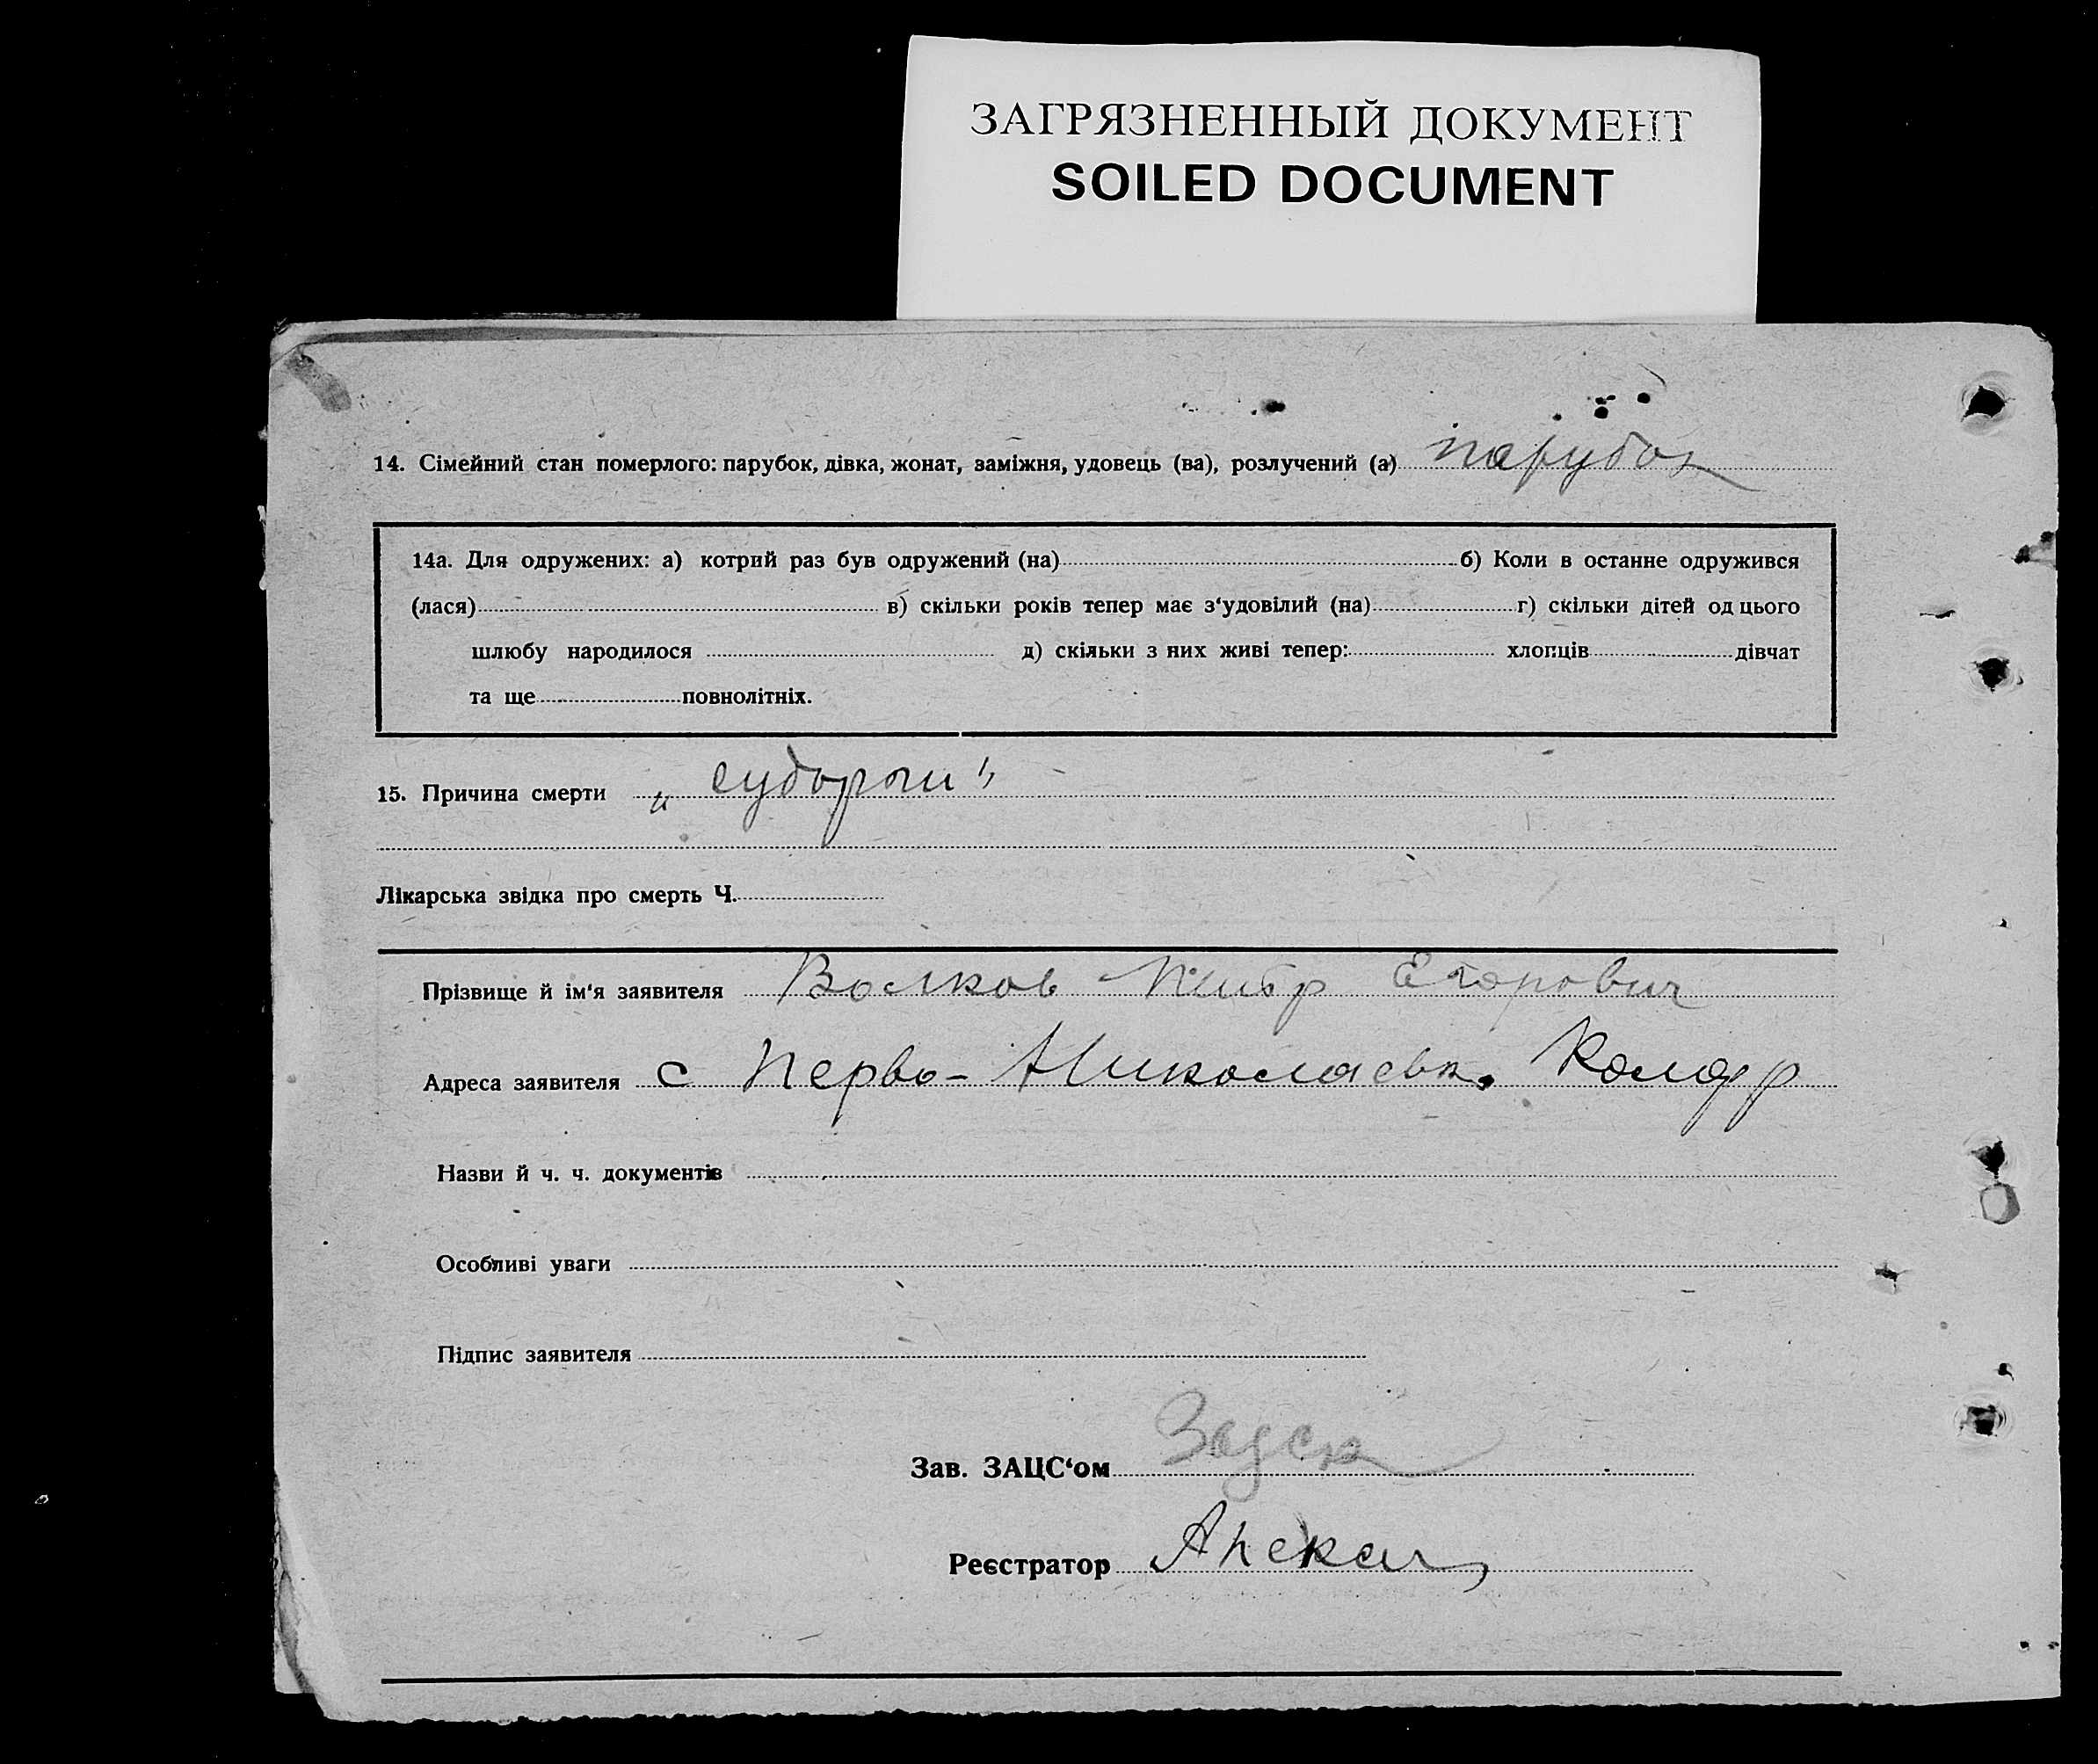 ЗАГРЯЗНЕННЫЙ ДОКУМЕНТ
SOILED DOCUMENT
14. Сімейний стан померлого: парубок, дівка, жонат, заміжня, удовець (ва), розлучений (а) парубок
14а. Для одружених: а) котрий раз був одружений (на) б) Коли в останне одружився
(лася) в) скільки років тепер має з‘удовілий (на) г) скільки дітей од цього
шлюбу народилося д) скільки з них живі тепер: хлопців дівчат
та ще повнолітніх.
15. Причина смерти „судороги"
Лікарська звідка про смерть Ч.
Прізвище й ім‘я заявителя Волков Егорович
Адреса заявителя с Перво-Николаевк.
Назви й ч. ч. документів
Особливі уваги
Підпис заявителя
Зав. ЗАЦС‘ом
Реєстратор